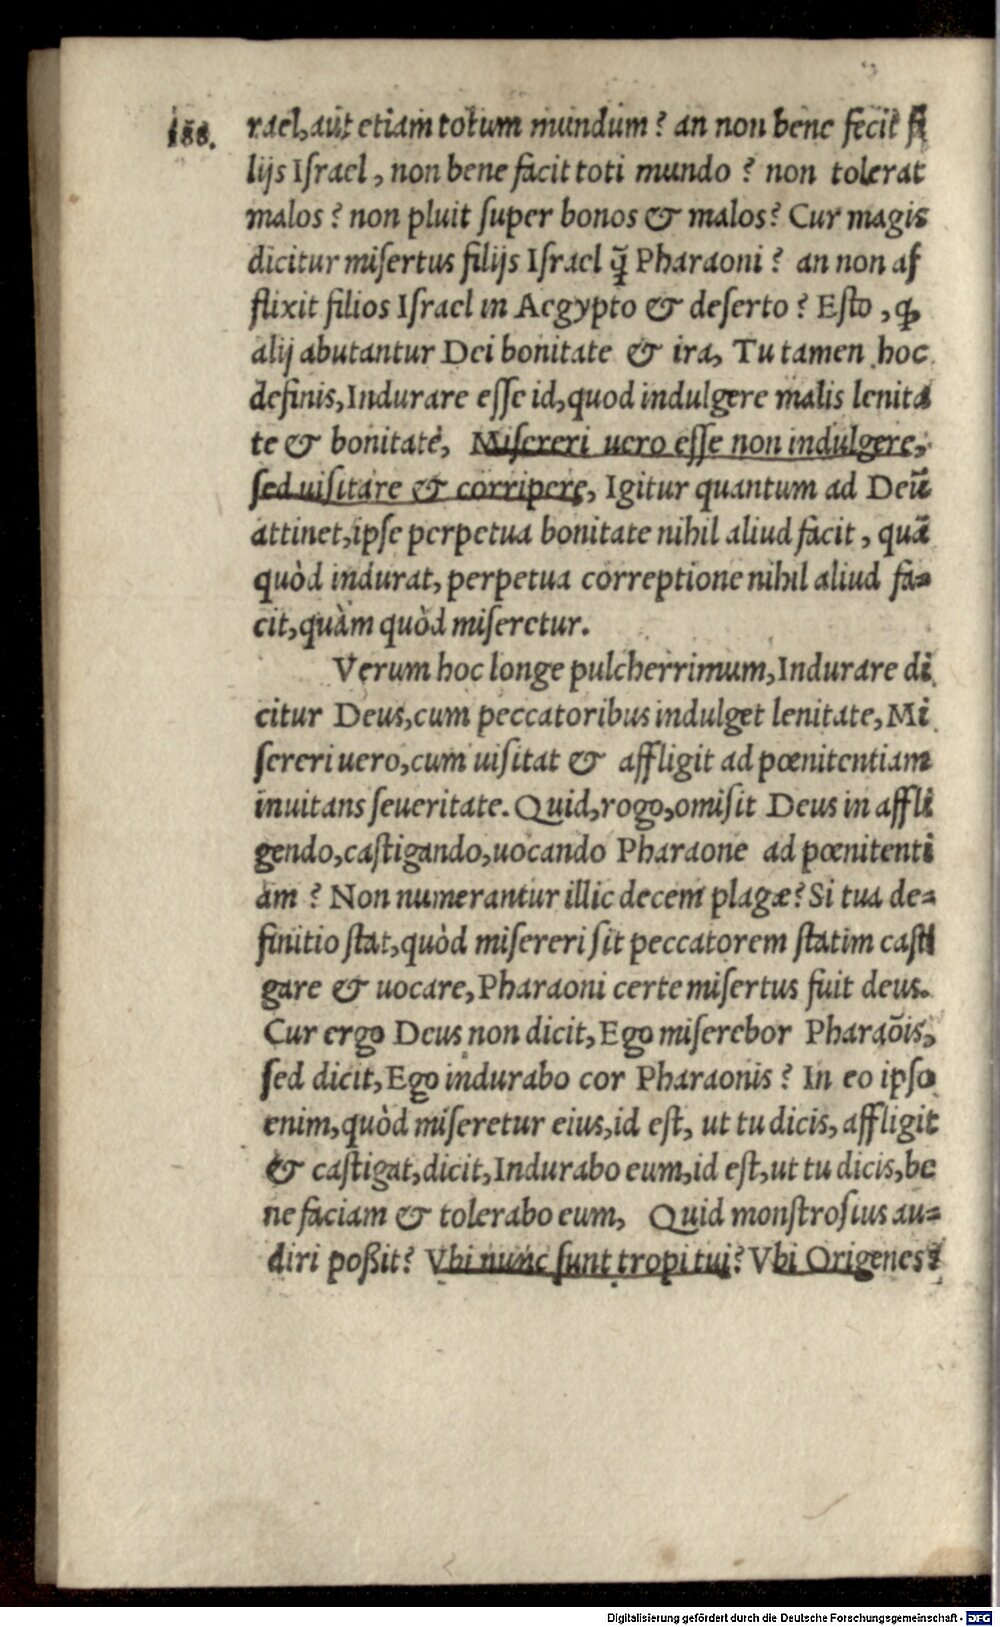 188.
rael, aut etiam totum mundum? an non bene fecit fi
lijs Iſrael, non bene facit toti mundo? non tolerat
malos? non pluit ſuper bonos & malos? Cur magis
dicitur miſertus filijs Iſrael q̃ Pharaoni? an non af
flixit filios Iſrael in Aegypto & deſerto? Eſto, ꝙ
alij abutantur Dei bonitate & ira, Tu tamen hoc
definis, Indurare eſſe id, quod indulgere malis lenita
te & bonitate, Miſereri uero eſſe non indulgere,
ſed uiſitare & corripere, Igitur quantum ad Deũ
attinet, ipſe perpetua bonitate nihil aliud facit, quã
quòd indurat, perpetua correptione nihil aliud fa-
cit, quàm quòd miſeretur.
Verum hoc longe pulcherrimum, Indurare di
citur Deus, cum peccatoribus indulget lenitate, Mi
ſereri uero, cum uiſitat & affligit ad pœnitentiam
inuitans ſeueritate. Quid, rogo, omiſit Deus in affli
gendo, caſtigando, uocando Pharaone ad pœnitenti
am? Non numerantur illic decem plagæ? Si tua de-
finitio ſtat, quòd miſereri ſit peccatorem ſtatim caſti
gare & uocare, Pharaoni certe miſertus fuit deus.
Cur ergo Deus non dicit, Ego miſerebor Pharaõis,
ſed dicit, Ego indurabo cor Pharaonis? In eo ipſo
enim, quòd miſeretur eius, id eſt, ut tu dicis, affligit
& caſtigat, dicit, Indurabo eum, id eſt, ut tu dicis, be
ne faciam & tolerabo eum, Quid monſtroſius au-
diri poßit? Vbi nunc ſunt tropi tui? Vbi Origenes?
Digitalisierung gefördert durch die Deutsche Forschungsgemeinschaft - DFG